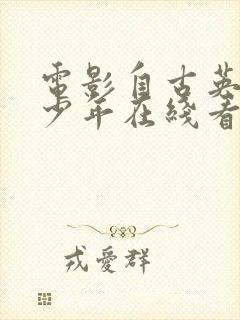 電影自古英
少年在綫看
戎愛群